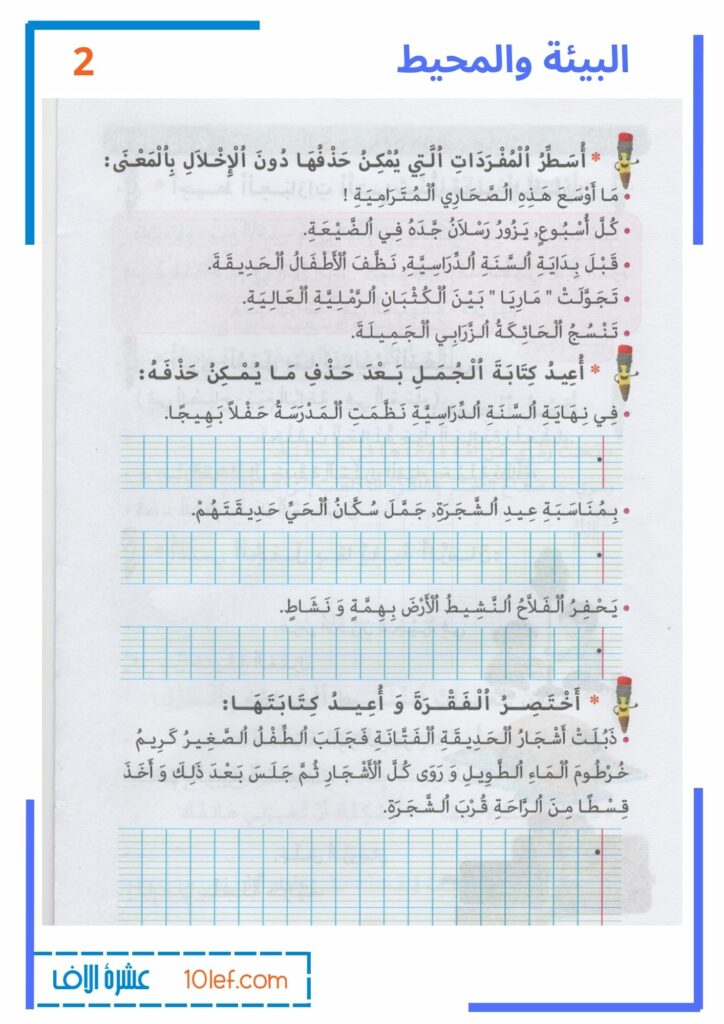 البيئة والمحيط
2
* أُسَطِّرُ ٱلْمُفْرَدَاتِ ٱلَّتِي يُمْكِنُ حَذْفُهَا دُونَ ٱلْإِخْلَالِ بِٱلْمَعْنَى:
• مَا أَوْسَعَ هَذِهِ ٱلصَّحَارِي ٱلْمُتَرَامِيَةِ !
• كُلَّ أُسْبُوعٍ، يَزُورُ رَسْلَانُ جَدَّهُ فِي ٱلضَّيْعَةِ.
• قَبْلَ بِدَايَةِ ٱلسَّنَةِ ٱلدِّرَاسِيَّةِ، نَظَّفَ ٱلْأَطْفَالُ ٱلْحَدِيقَةَ.
• تَجَوَّلَتْ " مَارِيَا " بَيْنَ ٱلْكُثْبَانِ ٱلرَّمْلِيَّةِ ٱلْعَالِيَةِ.
• تَنْسُجُ ٱلْحَائِكَةُ ٱلزَّرَابِي ٱلْجَمِيلَةَ.
* أُعِيدُ كِتَابَةَ ٱلْجُمَلِ بَعْدَ حَذْفِ مَا يُمْكِنُ حَذْفَهُ:
• فِي نِهَايَةِ ٱلسَّنَةِ ٱلدِّرَاسِيَّةِ نَظَّمَتِ ٱلْمَدْرَسَةُ حَفْلًا بَهِيجًا.
• بِمُنَاسَبَةِ عِيدِ ٱلشَّجَرَةِ، جَمَّلَ سُكَّانُ ٱلْحَيِّ حَدِيقَتَهُمْ.
• يَحْفِرُ ٱلْفَلَّاحُ ٱلنَّشِيطُ ٱلْأَرْضَ بِهِمَّةٍ وَ نَشَاطٍ.
* أَخْتَصِرُ ٱلْفَقْرَةَ وَ أُعِيدُ كِتَابَتَهَا:
• ذَبُلَتْ أَشْجَارُ ٱلْحَدِيقَةِ ٱلْفَتَّانَةِ فَجَلَبَ ٱلطِّفْلُ ٱلصَّغِيرُ كَرِيمُ
خُرْطُومَ ٱلْمَاءِ ٱلطَّوِيلِ وَ رَوَى كُلَّ ٱلْأَشْجَارِ ثُمَّ جَلَسَ بَعْدَ ذَلِكَ وَ أَخَذَ
قِسْطًا مِنَ ٱلرَّاحَةِ قُرْبَ ٱلشَّجَرَةِ.
عشرة الاف 10lef.com